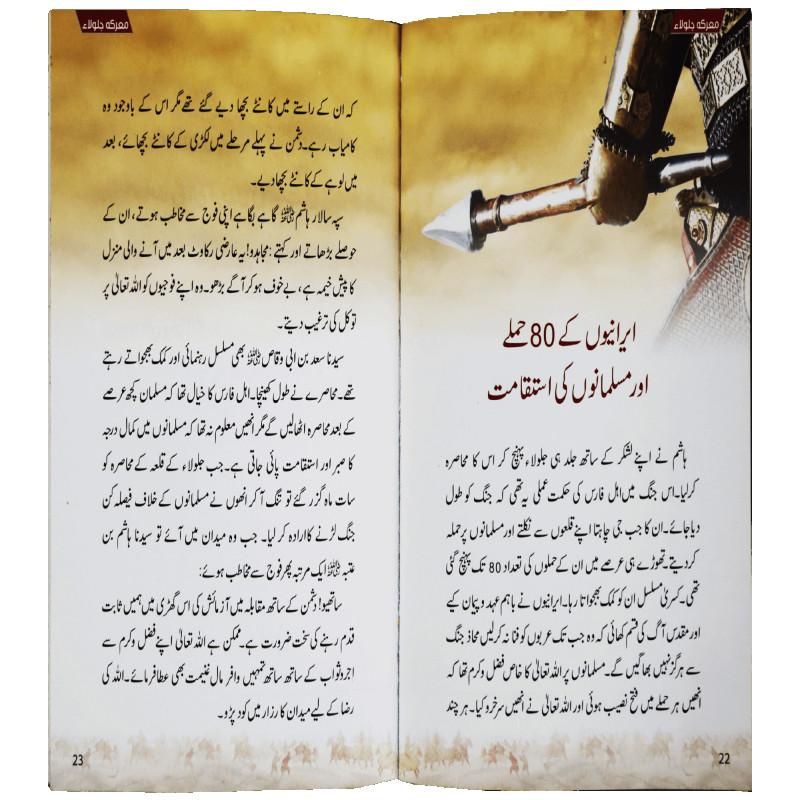 معرکہ جلولاء
ایرانیوں کے 80 حملے
اور مسلمانوں کی استقامت
ہاشم نے اپنے لشکر کے ساتھ جلد ہی جلولاء پہنچ کر اس کا محاصرہ
کرلیا۔اس جنگ میں اہل فارس کی حکمت عملی یہ تھی کہ جنگ کو طول
دیا جائے۔ان کا جب جی چاہتا اپنے قلعوں سے نکلتے اور مسلمانوں پر حملہ
کردیتے۔تھوڑے ہی عرصے میں ان کے حملوں کی تعداد 80 تک پہنچ گئی
تھی۔کسریٰ مسلسل ان کو کمک بھجواتا رہا۔ایرانیوں نے باہم عہد و پیمان کیے
اور مقدس آگ کی قسم کھائی کہ وہ جب تک عربوں کو فنا نہ کرلیں محاذ جنگ
سے ہرگز نہیں بھاگیں گے۔ مسلمانوں پر اللہ تعالیٰ کا خاص فضل و کرم تھا کہ
انھیں ہر حملے میں فتح نصیب ہوئی اور اللہ تعالیٰ نے انھیں سرخرو کیا۔ہر چند
22
معرکہ جلولاء
کہ ان کے راستے میں کانٹے بچھا دیے گئے تھے مگر اس کے باوجود وہ
کامیاب رہے۔دشمن نے پہلے مرحلے میں لکڑی کے کانٹے بچھائے، بعد
میں لوہے کے کانٹے بچھا دیے۔
سپہ سالار ہاشم رضی اللہ عنہ گاہے بگاہے اپنی فوج سے مخاطب ہوتے، ان کے
حوصلے بڑھاتے اور کہتے: مجاہدو! یہ عارضی رکاوٹ بعد میں آنے والی منزل
کا پیش خیمہ ہے، بے خوف ہو کر آگے بڑھو۔ وہ اپنے فوجیوں کو اللہ تعالیٰ پر
توکل کی ترغیب دیتے۔
سیدنا سعد بن ابی وقاص رضی اللہ عنہ بھی مسلسل رہنمائی اور کمک بھجواتے رہتے
تھے۔محاصرے نے طول کھینچا۔اہل فارس کا خیال تھا کہ مسلمان کچھ عرصے
کے بعد محاصرہ اٹھالیں گے مگر انھیں معلوم نہ تھا کہ مسلمانوں میں کمال درجہ
کا صبر اور استقامت پائی جاتی ہے۔جب جلولاء کے قلعہ کے محاصرہ کو
سات ماہ گزر گئے تو تنگ آ کر انھوں نے مسلمانوں کے خلاف فیصلہ کن
جنگ لڑنے کا ارادہ کر لیا۔ جب وہ میدان میں آئے تو سیدنا ہاشم بن
عتبہ رضی اللہ عنہ ایک مرتبہ پھر فوج سے مخاطب ہوئے:
ساتھیو! دشمن کے ساتھ مقابلہ میں آزمائش کی اس گھڑی میں ہمیں ثابت
قدم رہنے کی سخت ضرورت ہے۔ممکن ہے اللہ تعالیٰ اپنے فضل و کرم سے
اجر و ثواب کے ساتھ ساتھ تمہیں وافر مال غنیمت بھی عطا فرمائے۔اللہ کی
رضا کے لیے میدان کارزار میں کود پڑو۔
23